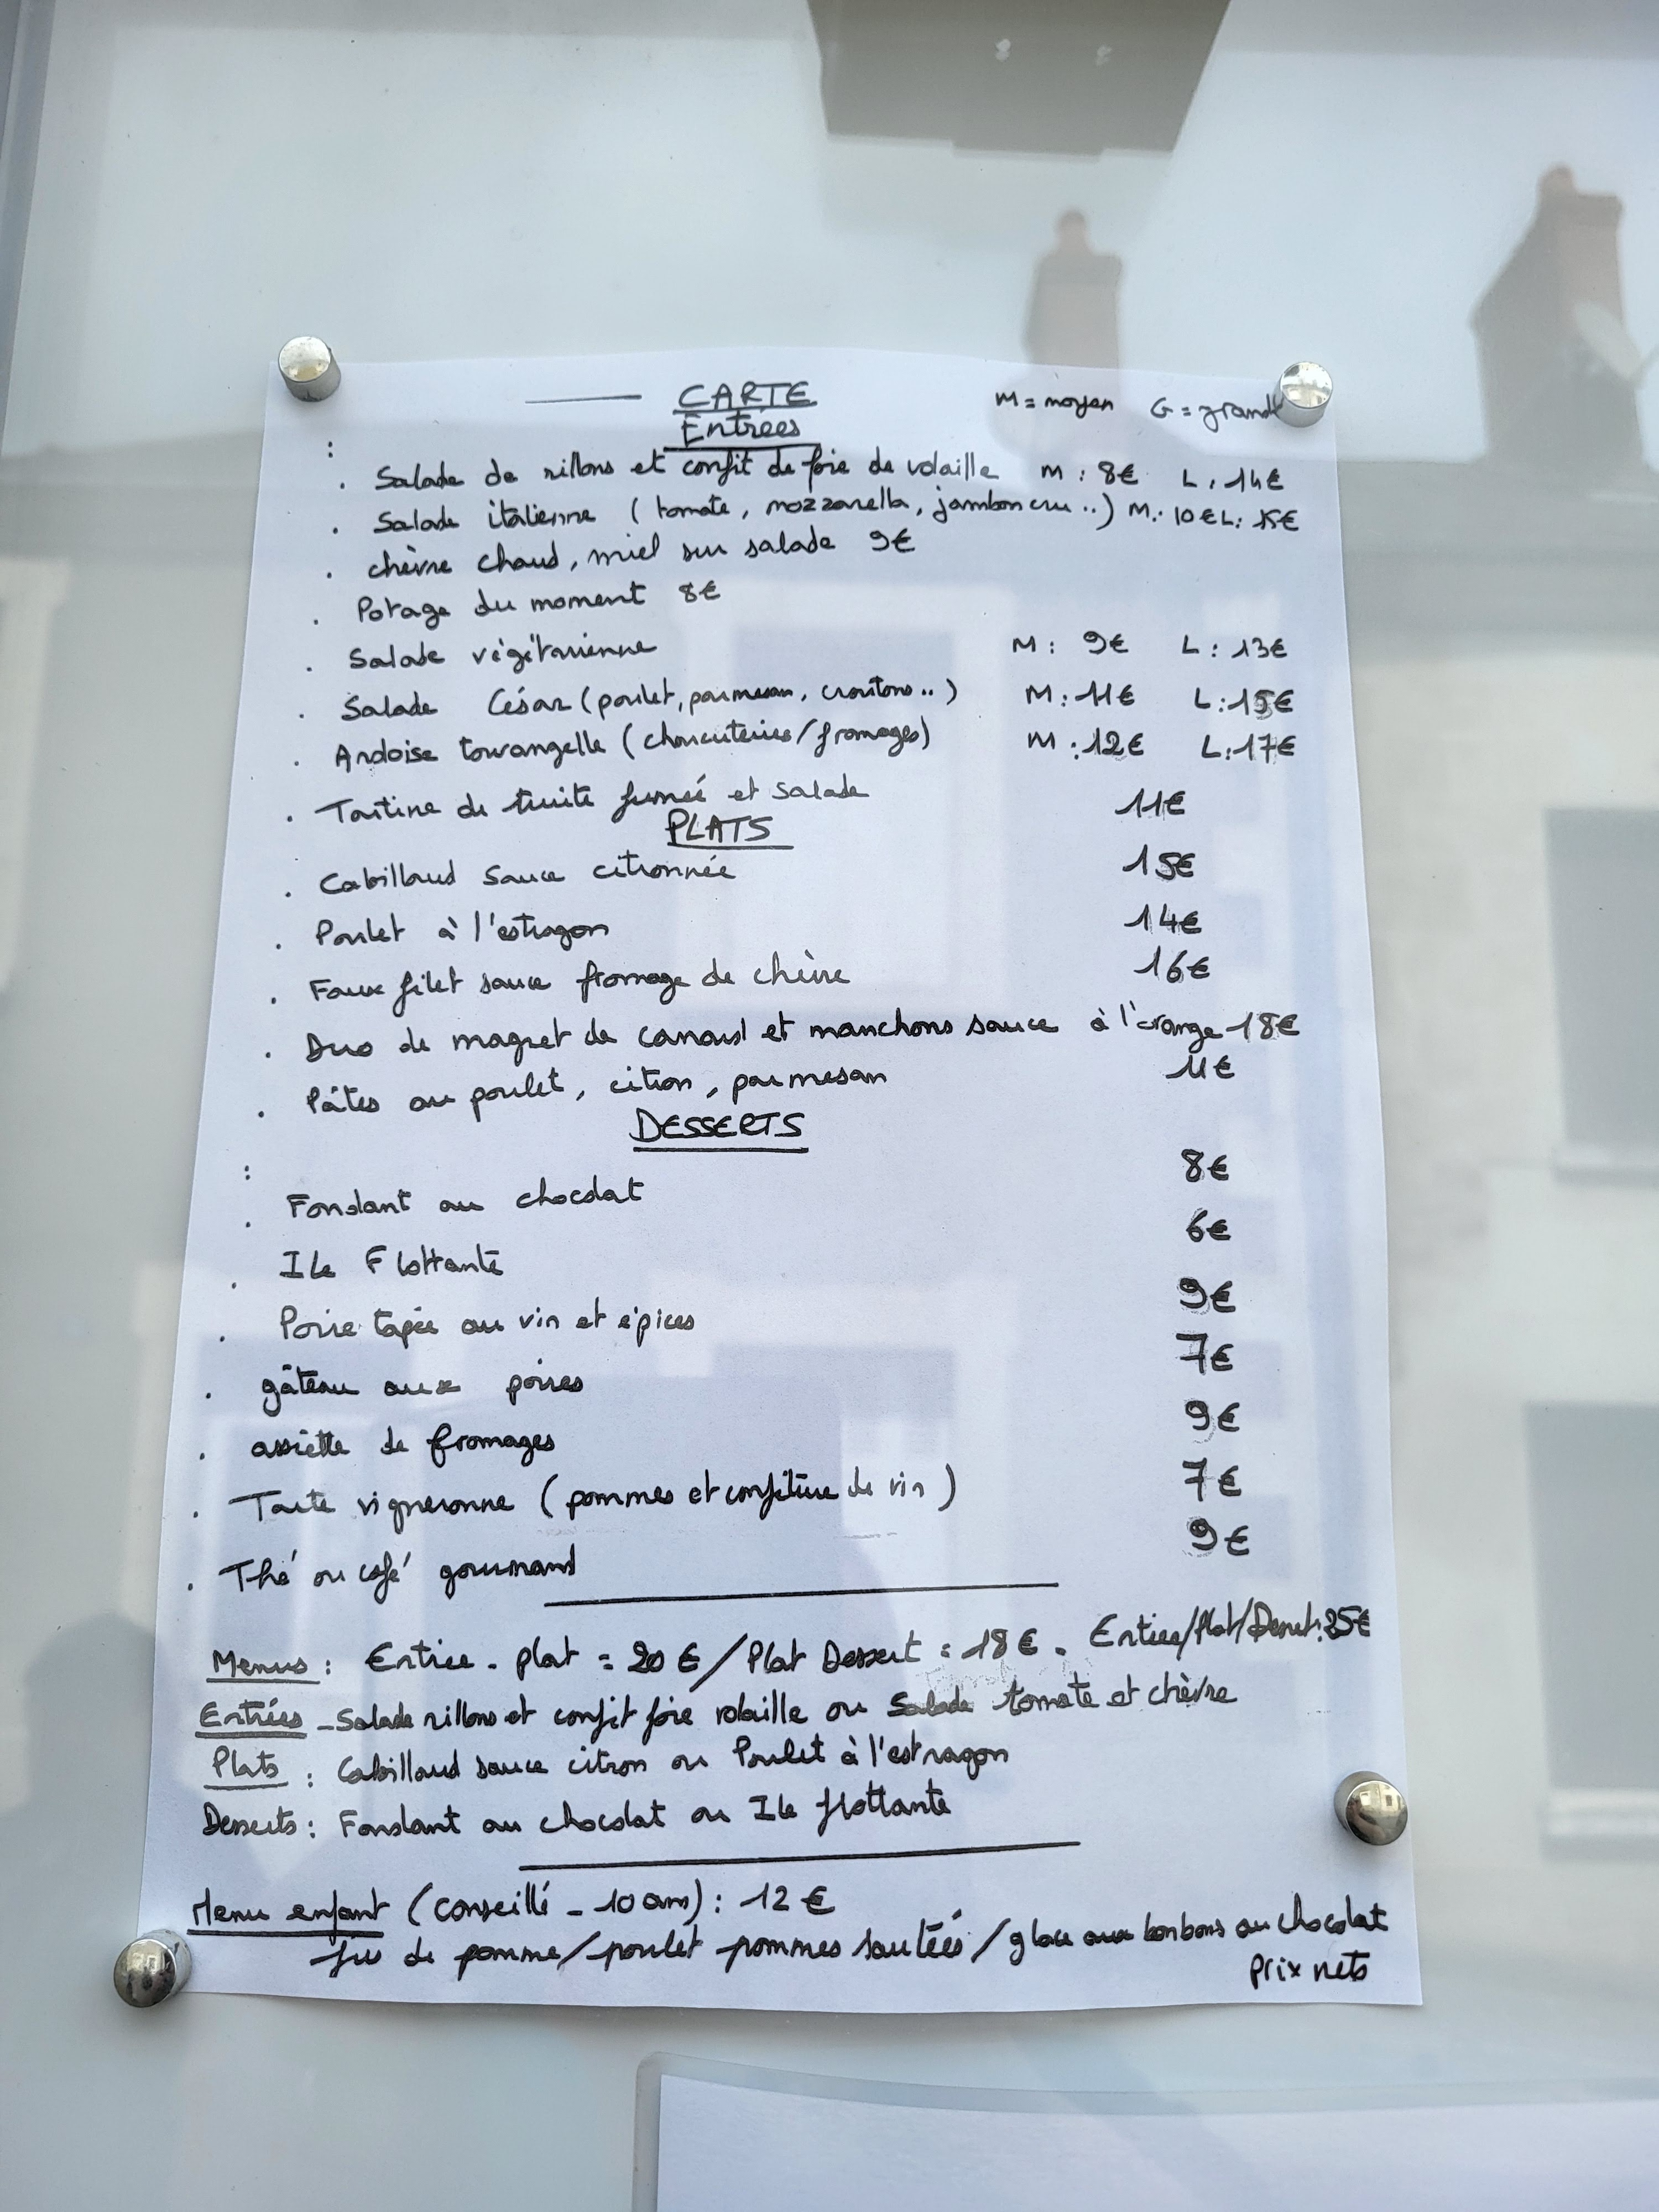 CARTE M = moyen G = grand
Entrées
. Salade de rillons et confit de foie de volaille M : 8€ L : 14€
. Salade italienne ( tomate, mozzarella, jambon cru ..) M : 10€ L : 15€
. chèvre chaud, miel sur salade 9€
. Potage du moment 8€
. Salade végétarienne M : 9€ L : 13€
. Salade César (poulet, parmesan, croutons ..) M : 11€ L : 15€
. Ardoise tourangelle (charcuteries/fromages) M : 12€ L : 17€
. Tartine de truite fumée et salade 11€
PLATS
. Cabillaud sauce citronnée 15€
. Poulet à l'estragon 14€
. Faux filet sauce fromage de chèvre 16€
. Duo de magret de canard et manchons sauce à l'orange 18€
. Pâtes au poulet, citron, parmesan 11€
DESSERTS
. Fondant au chocolat 8€
. Ile Flottante 6€
. Poire tapée au vin et épices 9€
. gâteau aux poires 7€
. assiette de fromages 9€
. Tarte vigneronne (pommes et confiture de vin) 7€
. Thé ou café gourmand 9€
Menus : Entrée - plat = 20 € / Plat Dessert = 18 € . Entrée/Plat/Dessert : 25€
Entrées - Salade rillons et confit foie volaille ou Salade tomate et chèvre
Plats : Cabillaud sauce citron ou Poulet à l'estragon
Desserts : Fondant au chocolat ou Ile flottante
Menu enfant (conseillé - 10 ans) : 12 €
Jus de pomme / poulet pommes sautées / glace aux bonbons au chocolat
Prix nets